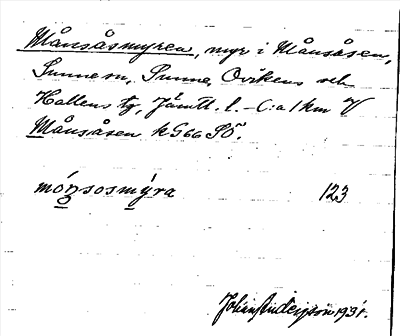 Månsåsmyren, myr i Månsåsen,
Sunne sn, Sunne, Ovikens och
Hallens tg, Jämtl. l. – C:a 1 km V
Månsåsen kG66SÖ.
mónsosmýra 123
Johan Anderson 1931.